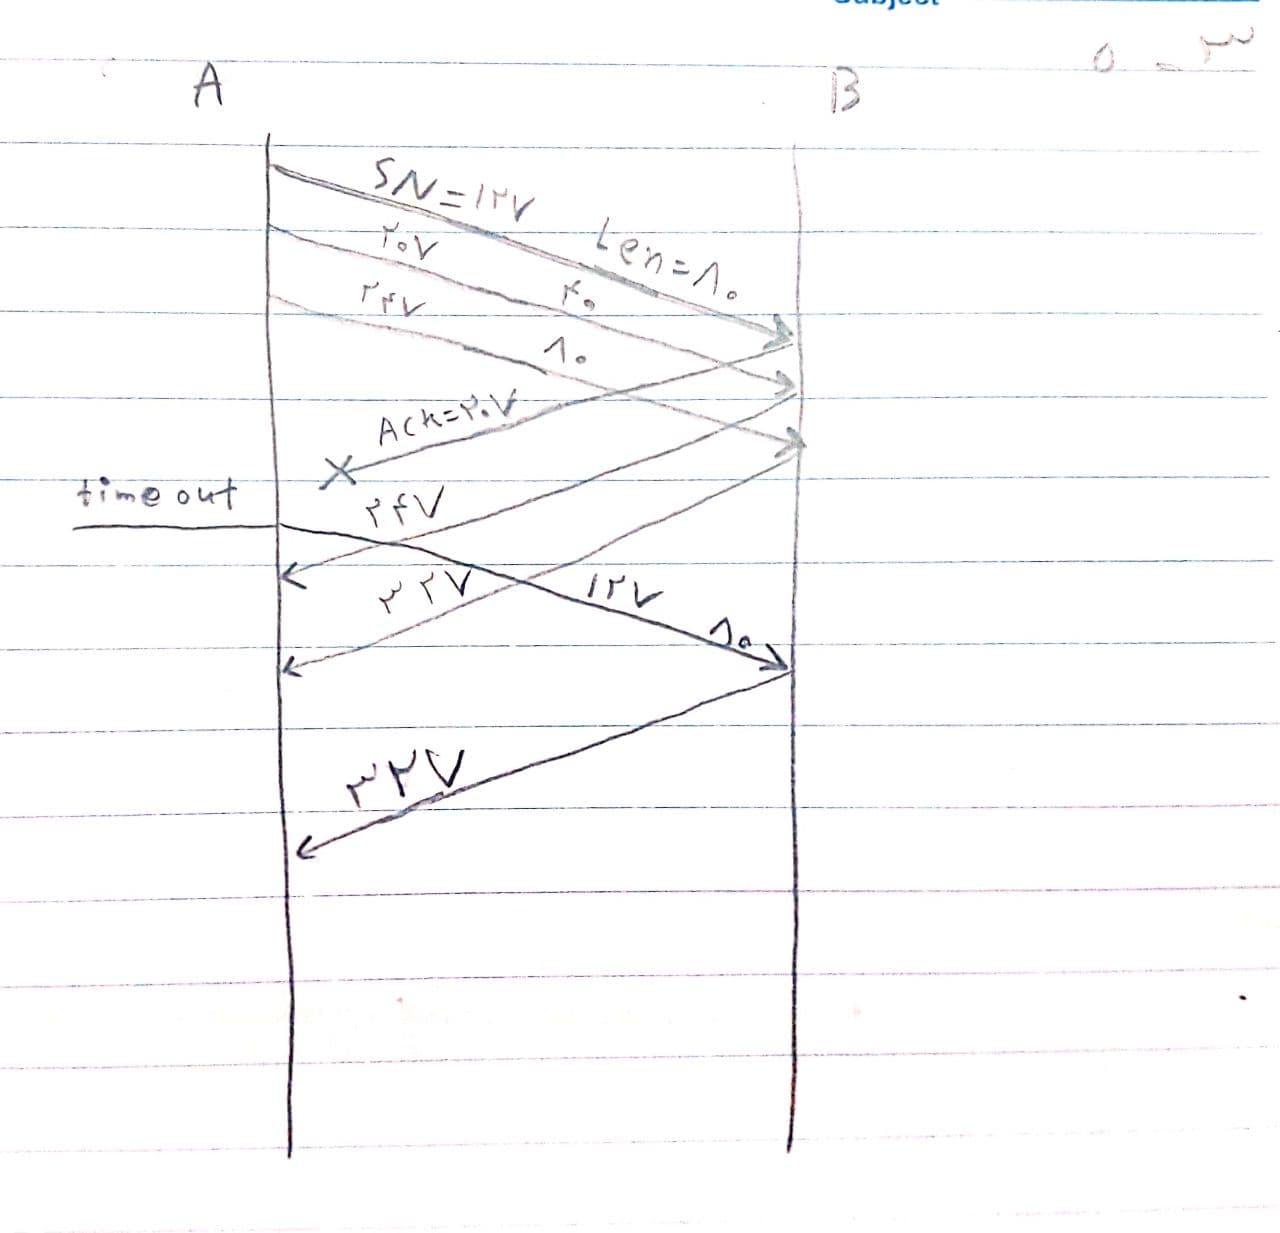 Subject
۵ - ۳
A
B
SN=۱۲۷ Len=۸۰
۲۰۷ ۴۰
۲۴۷ ۸۰
Ack=۲۰۷
time out
۲۴۷
۳۲۷
۱۲۷ ۸۰
۳۲۷